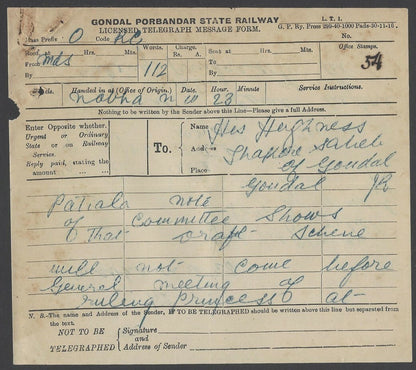 GONDAL PORBANDAR STATE RAILWAY
L. T. I.
LICENSED TELEGRAPH MESSAGE FORM.
G. P. Ry. Press 299-40-1000 Pads-30-11-15.
Class Prefix O Code RC
Words.
Charge.
Office Stamps.
Recd. at Hrs. Mns.
Rs. A.
Sent at Hrs. Mns.
54
From mds
112
To
By
By
Handed in at (Office of Origin). Date. Hour. Minute
Service Instructions.
Nabha 23
Nothing to be written by the Sender above this Line—Please giving a full Address.
Enter Opposite whether.
Urgent or Ordinary
State or on Railway
Service.
Reply paid, stating the
amount
To.
Name His Highness
And Thakore Saheb
Address of Gondal
Place Gondal JR
Patiala note
of Committee Shows
That draft Scheme
will not come before
General meeting of
ruling Princess at
N. B.-The name and Address of the Sender, IF TO BE TELEGRAPHED should be written above this line but separated from
the text.
NOT TO BE
TELEGRAPHED
Signature
and
Address of Sender